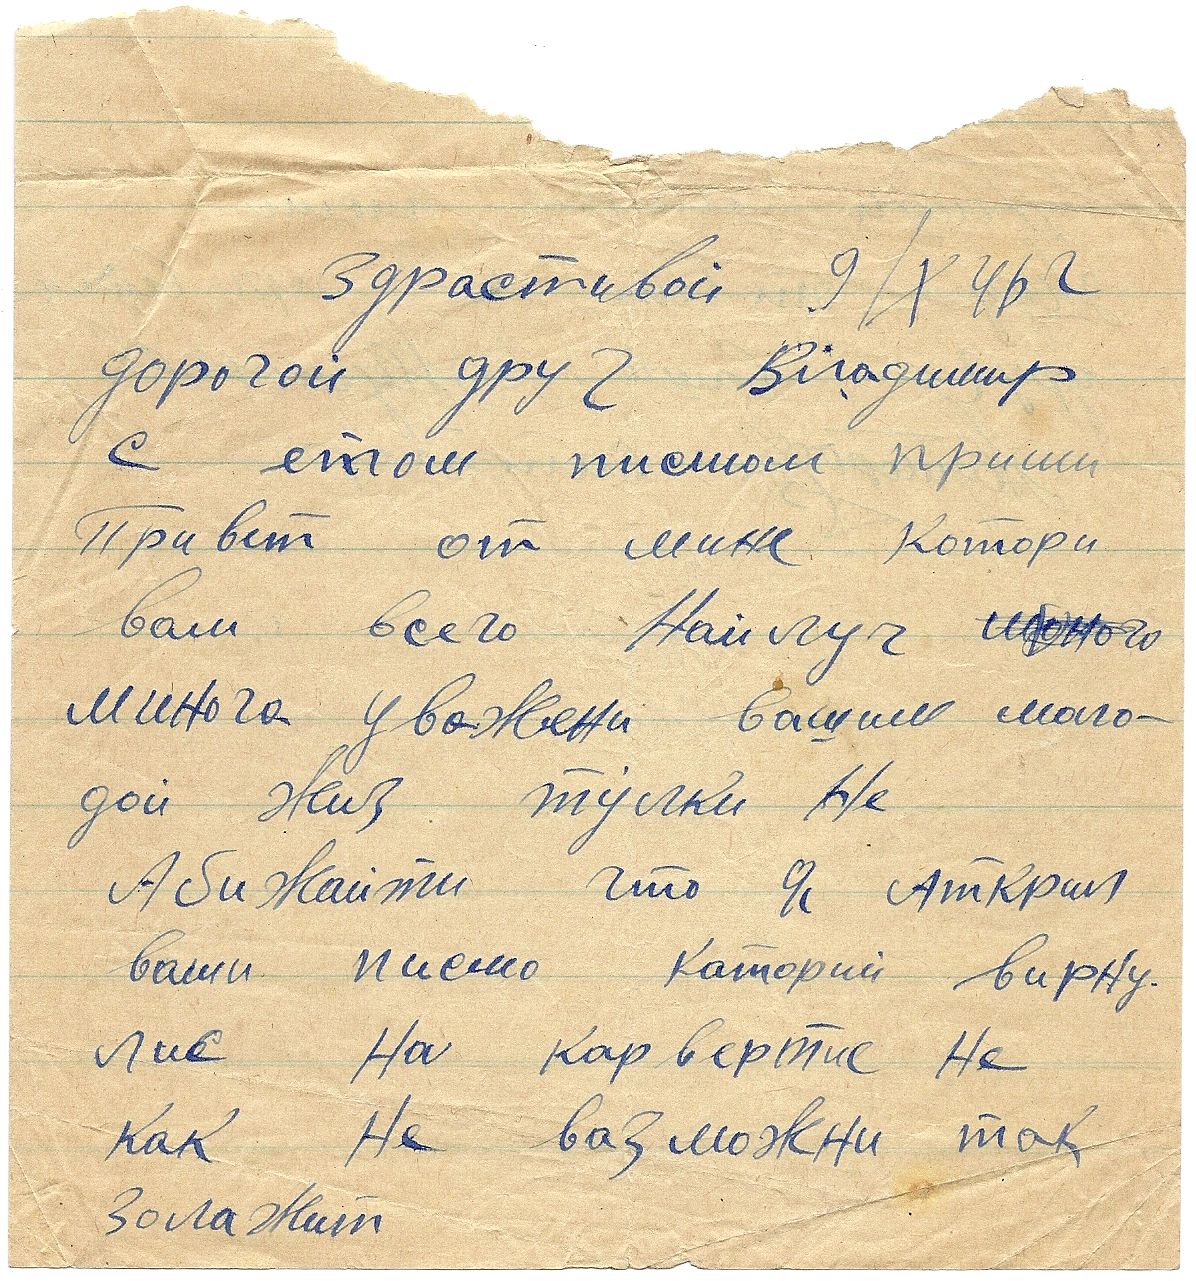 Здраствивой 9/X
дорогой друг Владимир
с етом писмом прими
Привет от мине котори
вам всего Наилуч
минога уважени вашим мало-
дой жиз тулки Не
Абижайти что я Аткрил
ваши писмо каторий вирну-
лис На карвертие Не
как Не вазможни так
золажит